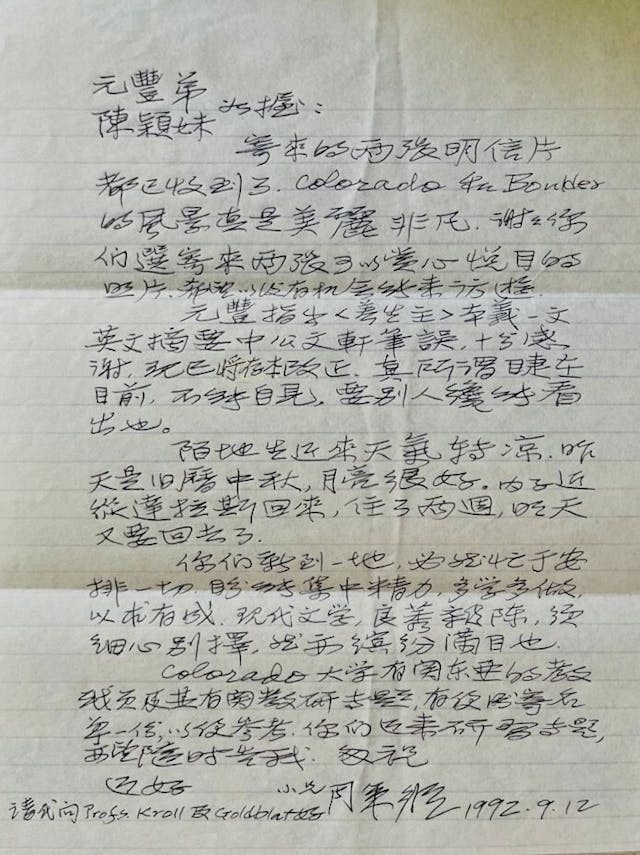 元豐弟
陳穎妹 如握:
寄來的兩張明信片
都已收到了. Colorado 和 Boulder
的風景真是美麗非凡. 謝謝你
們選寄來兩張可以賞心悅目的
照片. 希望以後有机会能來訪
元豐指出<養生主>本義一文
英文摘要中公文軒筆誤, 十分感
謝, 現已將存本改正. 真所謂睫在
目前, 不能自見, 要別人纔能看
出也。
陌地生近來天氣特凉. 昨
天是旧曆中秋, 月亮很好。內子近
從達拉斯回來, 住了兩週, 明天
又要回去了.
你們新到一地, 必然忙于安
排一切. 盼能集中精力, 多学多做,
以求有成. 現代文学, 良莠雜陈, 須
細心別擇, 然而缤纷滿目也.
Colorado 大学有関东亚的教
職员及其有関教研专题, 有便盼寄名
单一份, 以供参考. 你们近來研習专题,
亦望隨时告我. 敬祝
近好
小兄周策縱 1992.9.12
請代我问 Profs. Kroll 及 Goldblatt 好